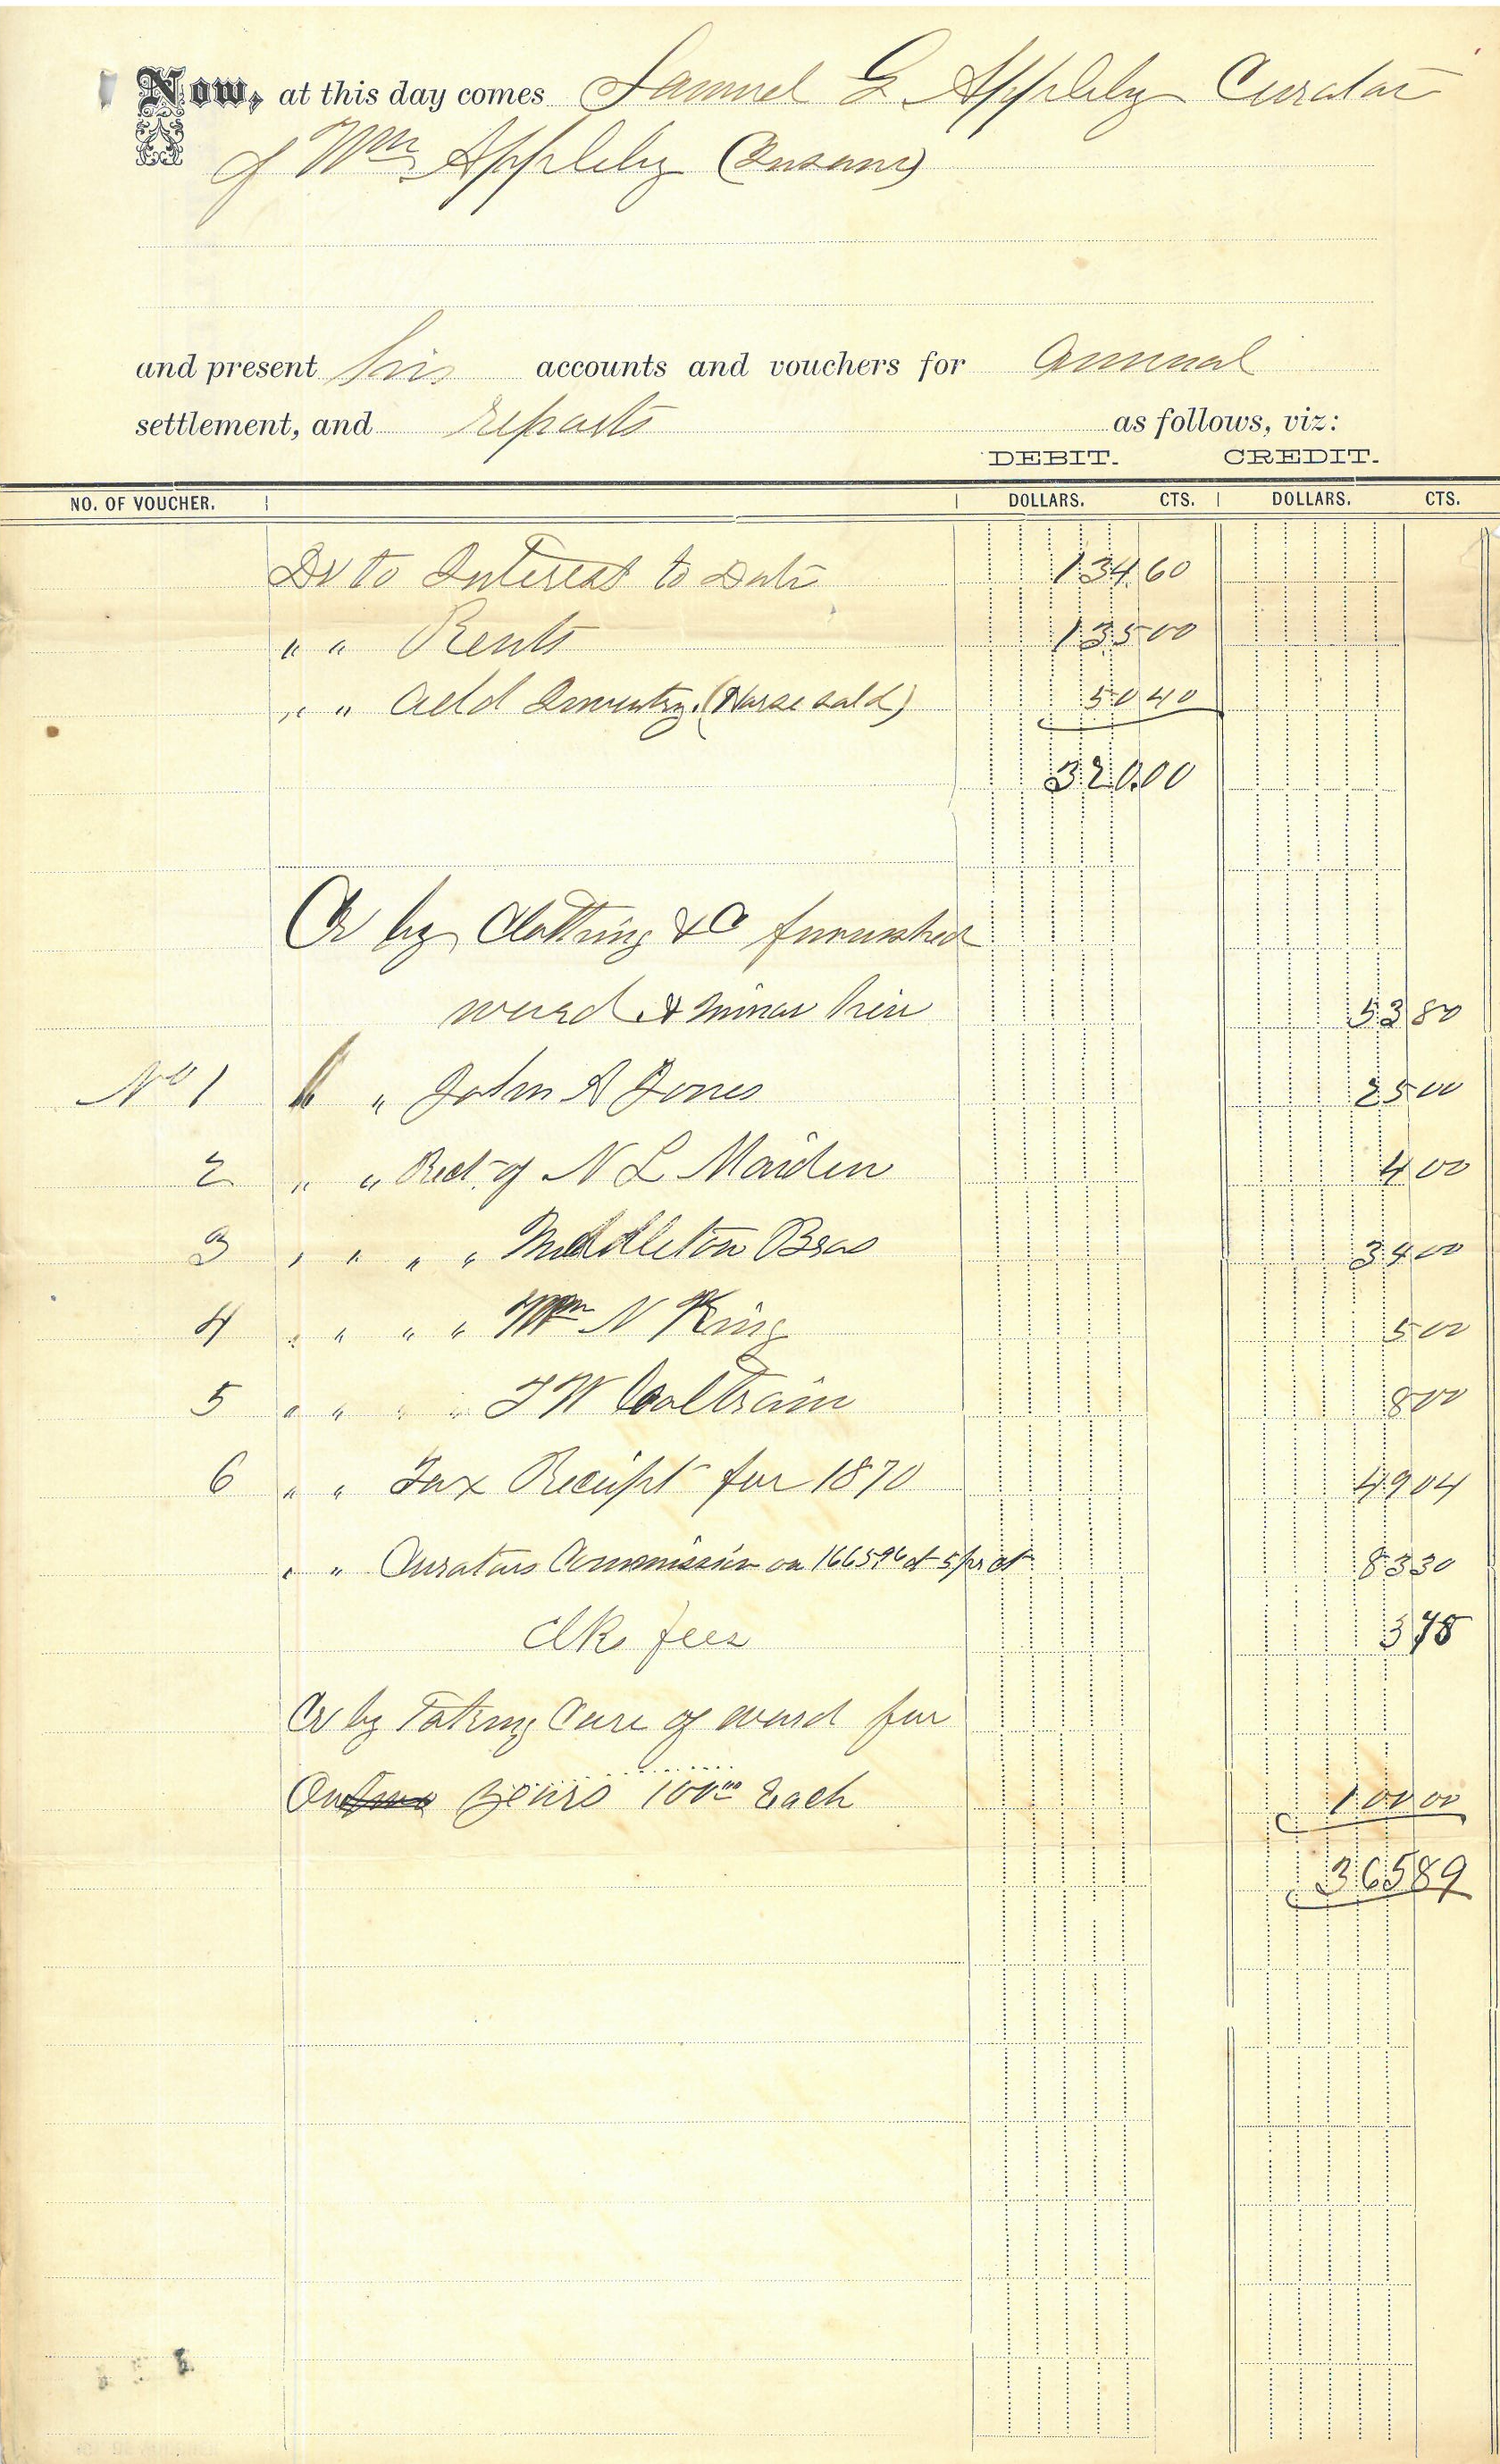 Now, at this day comes Samuel G Appleby Curator
of Wm Appleby (Insane)
and present his accounts and vouchers for annual
settlement, and reports as follows, viz:
DEBIT. CREDIT.
NO. OF VOUCHER. DOLLARS. CTS. DOLLARS. CTS.
Dr to Interest to Date 134.60
" " Rents 135 00
" " add Inventry. (Horse sold) 50 40
320.00
Cr by Clothing &C furnished
ward & minor heir 53 80
No 1 " " John A Jones 25 00
2 " " Rect. of N L Maiden 4 00
3 " " " " Middleton Bros 34 00
4 " " " " Wm N King 5 00
5 " " " " T W Coltrain 8 00
6 " " Tax Receipt for 1870 49 04
" " Curators Commission on 166596 at 5 pr ct 83 30
Clk fees 3 75
Cr by Taking Care of ward for
One years 100 00 Each 100 00
365 89